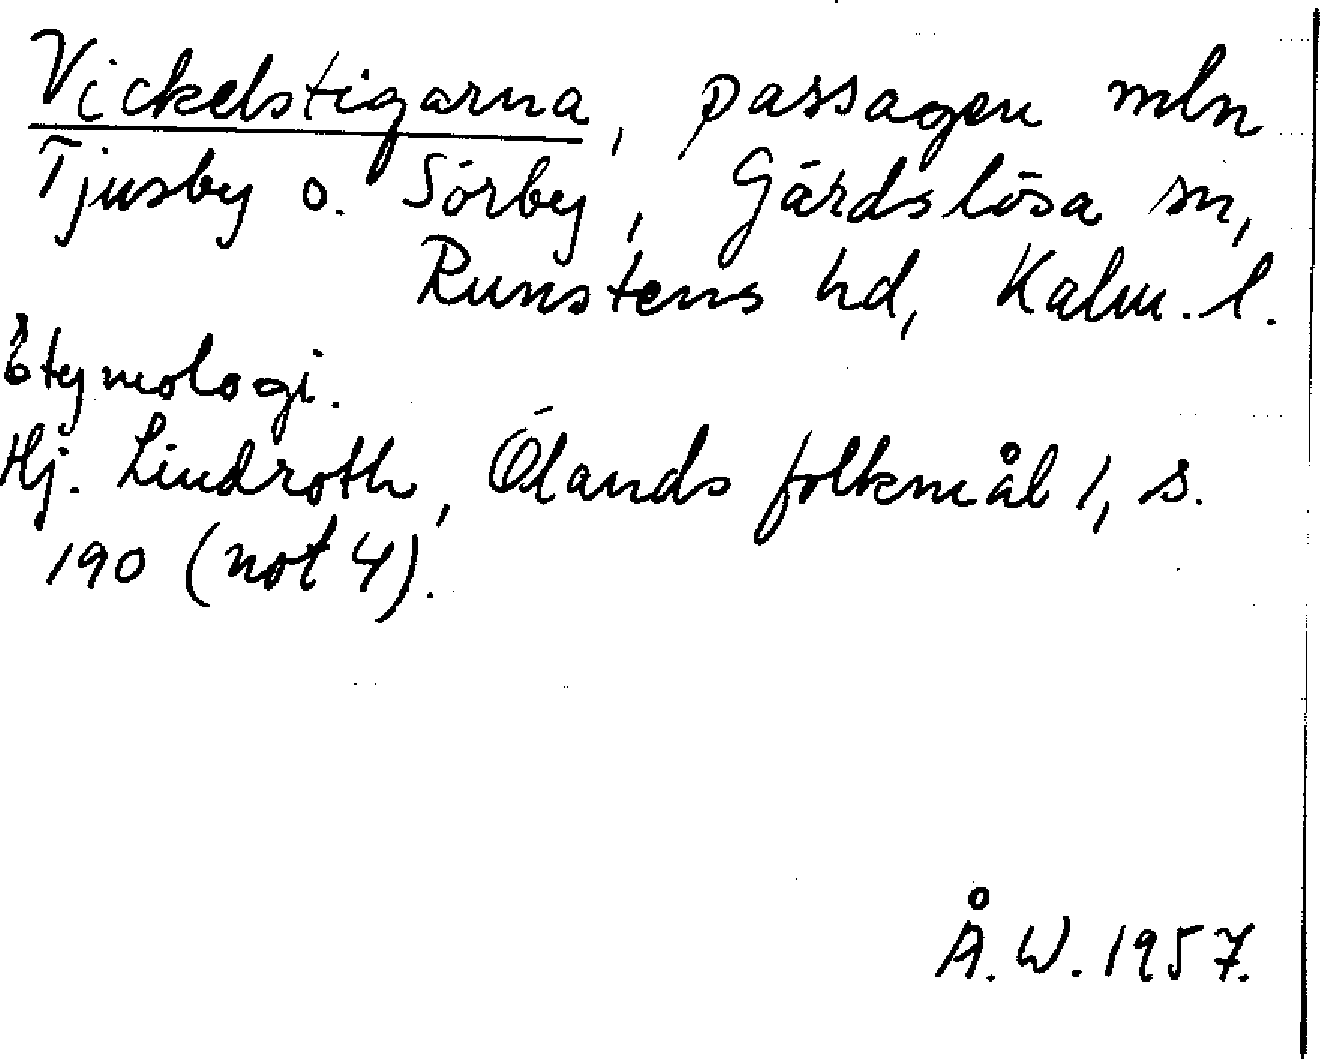 Vickelstigarna, passagen mln
Tjusby o. Sörby, Gärdslösa sn,
Runstens hd, Kalm. l.
Etymologi.
Hj. Lindroth, Ölands folkmål 1, s.
190 (not 4).
Å. W. 1957.